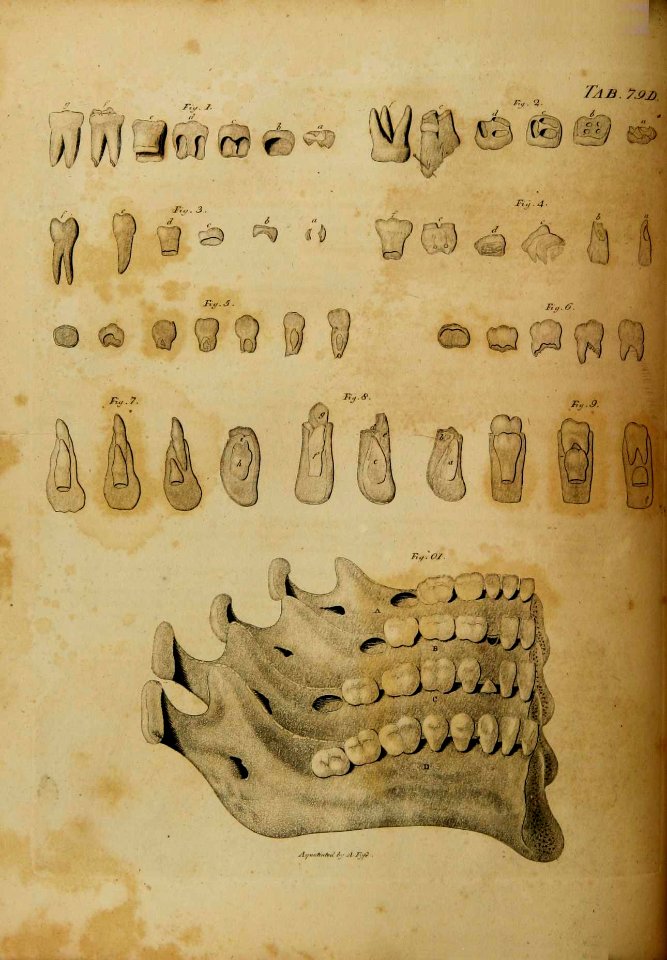 TAB. 79.D.
Fig. 1. Fig. 2.
g f e d c b a f e d c b a
Fig. 3. Fig. 4.
f e d c b a f e d c b a
Fig. 5. Fig. 6.
Fig. 7. Fig. 8. Fig. 9.
g
e h f c b a
Fig. 01.
A
B
C
D
Aquatinted by A. Fyfe.